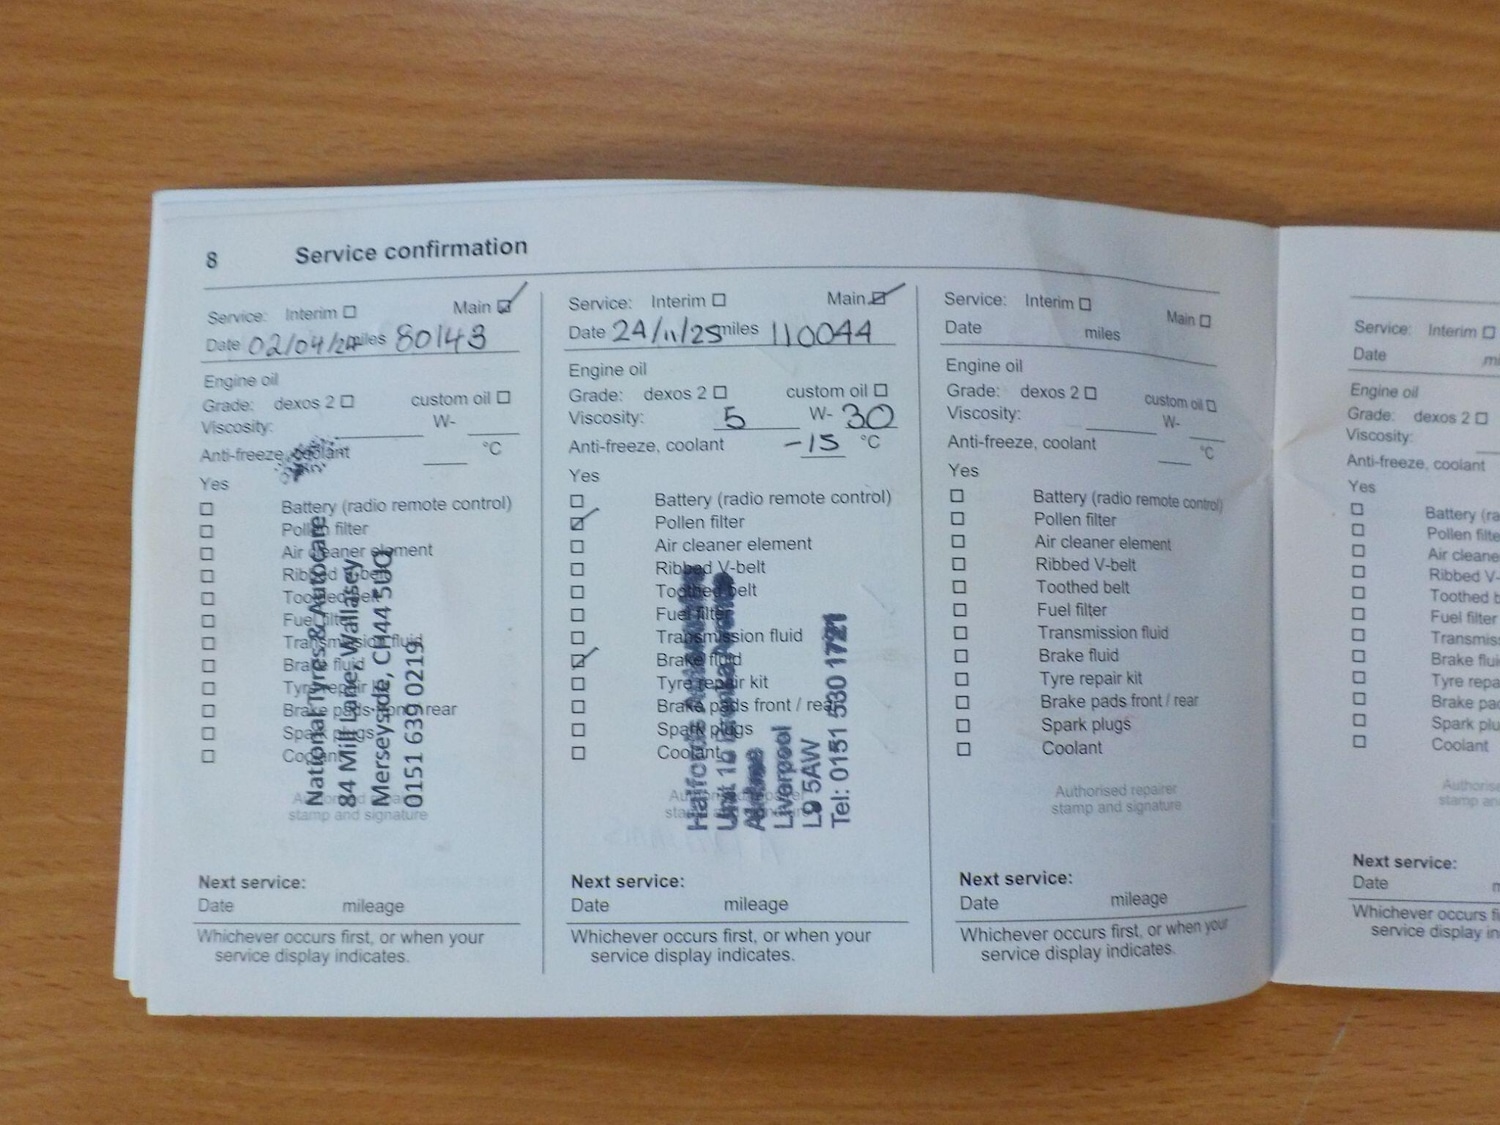 8 Service confirmation
Service: Interim Main
Date 02/04/24 miles 80143
Engine oil
Grade: dexos 2 custom oil
Viscosity: W-
Anti-freeze, coolant °C
Yes
Battery (radio remote control)
Pollen filter
Air cleaner element
Ribbed V-belt
Toothed belt
Fuel filter
Transmission fluid
Brake fluid
Tyre repair kit
Brake pads front / rear
Spark plugs
Coolant
Authorised repairer
stamp and signature
National Tyres & Autocare
84 Mill Lane, Wallasey
Merseyside, CH44 5UG
0151 639 0219
Next service:
Date mileage
Whichever occurs first, or when your
service display indicates.
Service: Interim Main
Date 24/11/25 miles 110044
Engine oil
Grade: dexos 2 custom oil
Viscosity: 5 W- 30
Anti-freeze, coolant -15 °C
Yes
Battery (radio remote control)
Pollen filter
Air cleaner element
Ribbed V-belt
Toothed belt
Fuel filter
Transmission fluid
Brake fluid
Tyre repair kit
Brake pads front / rear
Spark plugs
Coolant
Authorised repairer
stamp and signature
Halfords
Unit 1b
Aintree
Liverpool
L9 5AW
Tel: 0151 530 1721
Next service:
Date mileage
Whichever occurs first, or when your
service display indicates.
Service: Interim Main
Date miles
Engine oil
Grade: dexos 2 custom oil
Viscosity: W-
Anti-freeze, coolant °C
Yes
Battery (radio remote control)
Pollen filter
Air cleaner element
Ribbed V-belt
Toothed belt
Fuel filter
Transmission fluid
Brake fluid
Tyre repair kit
Brake pads front / rear
Spark plugs
Coolant
Authorised repairer
stamp and signature
Next service:
Date mileage
Whichever occurs first, or when your
service display indicates.
Service: Interim
Date mi
Engine oil
Grade: dexos 2
Viscosity:
Anti-freeze, coolant
Yes
Battery (ra
Pollen filte
Air cleane
Ribbed V-
Toothed b
Fuel filter
Transmiss
Brake flui
Tyre repa
Brake pad
Spark plu
Coolant
Authoris
stamp an
Next service:
Date m
Whichever occurs fi
service display in